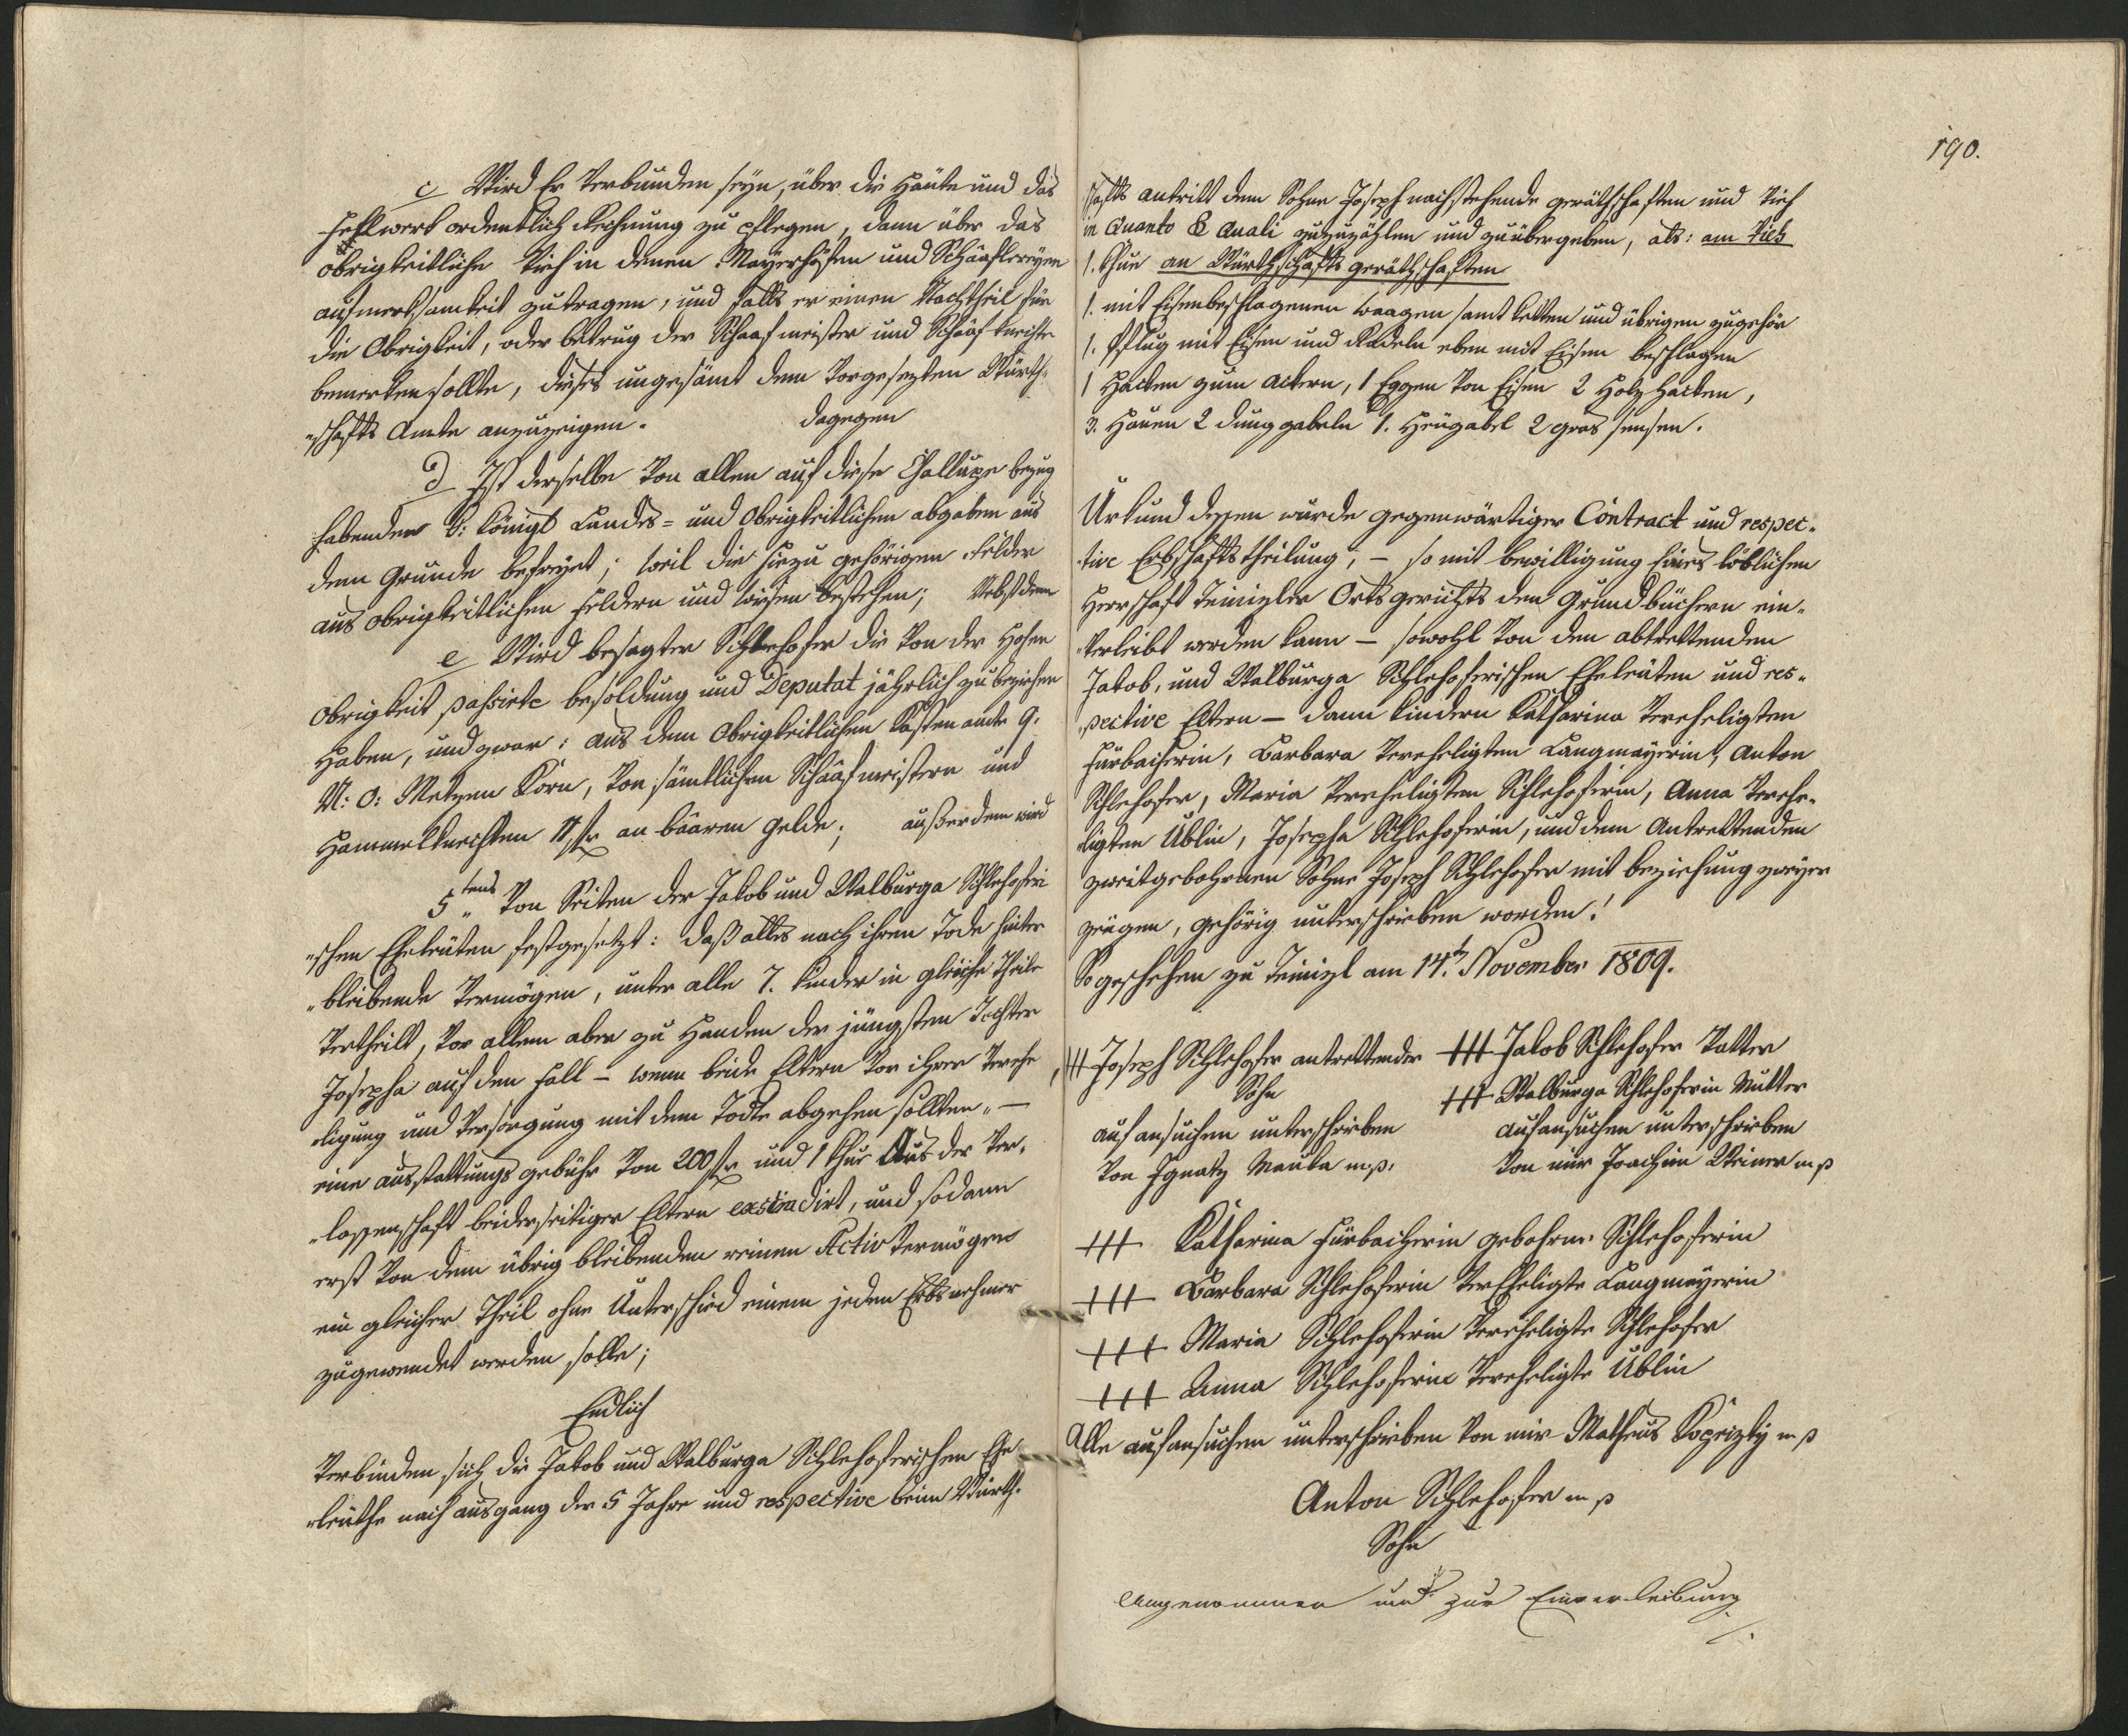 c Wird Er verbunden seyn, über die Häute und das
Fehlwerk ordentlich Rechnung zu pflegen, dann über das
Obrigkeitliche Vieh in denen Mayerhöfen und Schäaflereyen
aufmerksamkeit zutragen, und falls er einen Nachtheil für
die Obrigkeit, oder betrug der Schaafmeister und Schäafknechte
bemerken sollte, dieses ungesämt dem vorgesezten Würth-
"schafts Amte anzuzeigen. dagegen
d Ist derselbe von allen auf diese Challupe bezug
habenden k: königl Landes- und Obrigkeitlichen abgaben aus
dem Grunde befreyet; weil die hiezu gehörigen Felder
aus obrigkeitlichen Feldern und Wiesen bestehen; Nebstdem
e Wird besagter Schlehofer die von der Hohen
Obrigkeit passirte besoldung und Deputat jährlich zu beziehen
Haben, und zwar: aus dem Obrigkeitlichen Kasten amte 9.
N: O: Metzen Korn, von sämtlichen Schäafmeistern und
Hammelknechten 11 fr an bäaren Gelde; außerdem wird
5tens Von Seiten der Jakob und Walburga Schlehoferi
"schen Eheleuten festgesetzt: daß alles nach ihren Tode hinter
"bleibende Vermögen, unter alle 7. Kinder in gleiche Theile
vertheilt, vor allem aber zu Handen der jüngsten Tochter
Josepha auf den Fall – wenn beide Eltern vor ihrer Verehe
"ligung und Versorgung mit dem Tode abgehen sollten " –
eine ausstattungs gebühr von 200 fr und 1 Khue Aus der Ver-
"lassenschaft beiderseitiger Eltern excindirt, und sodann
erst von dem übrig bleibenden reinen Activ Vermögen
ein gleicher Theil ohne Unterschied einem jeden Erbsnehmer
zugewendet werden solle;
Endlich
Verbinden sich die Jakob und Walburga Schlehoferischen Ehe
"leuthe nach ausgang der 5 Jahre und respective beim Würth-
190.
schafts antritt dem Sohne Joseph nachstehende geräthschaften und Vieh
in Quanto & Quali zuzuzählen und zu übergeben, als: am Vieh
1. Khue an Würthschafts geräthschaften
1. mit Eisenbeschlagenen waagen samt ketten und übrigen zugehör
1. Pflug mit Eisen und Radeln eben mit Eisen beschlagen
1 Hacken zum ackern, 1 Eggen von Eisen 2 Holz Hacken,
3. Hauen 2 dunggabeln 1. Heugabel 2 gras sensen.
Urkund dessen wurde gegenwärtiger Contract und respec-
"tive Erbschaftstheilung, – so mit bewilligung Eines löblichen
Herrschaft Teinizler Ortsgerichts den Grundbüchern ein-
"verleibt werden kann – sowohl von den abtrettenden
Jakob, und Walburga Schlehoferischen Eheleuten und res-
"pective Eltern – dann kindern Katharina verehligten
Fürbacherin, Barbara verehligten Langmayerin, Anton
Schlehofer, Maria verehligten Schlehoferin, Anna Verehe-
"ligten Üblin, Josepha Schlehoferin, und dem Antrettenden
zweitgebohrnen Sohne Joseph Schlehofer mit beziehung zweyer
zeugen, gehörig unterschrieben worden!
So geschehen zu Teinizl am 14t. November 1809.
+++ Joseph Schlehofer antrettender
Sohn
auf ansuchen unterschrieben
von Ignatz Maula m.p.
+++ Jakob Schlehofer Vatter
+++ Walburga Schlehoferin Mutter
auf ansuchen unterschrieben
von mir Joachim Weiner mp
+++ Katharina Fürbacherin gebohrne Schlehoferin
+++ Barbara Schlehoferin VerEheligte Langmayerin
+++ Maria Schlehoferin Verehligte Schlehofer
+++ Anna Schlehoferin Verehligte Üblin
Alle auf ansuchen unterschrieben von mir Matheus mp
Anton Schlehofer mp
Sohn
Angenommen und zur Einverleibung